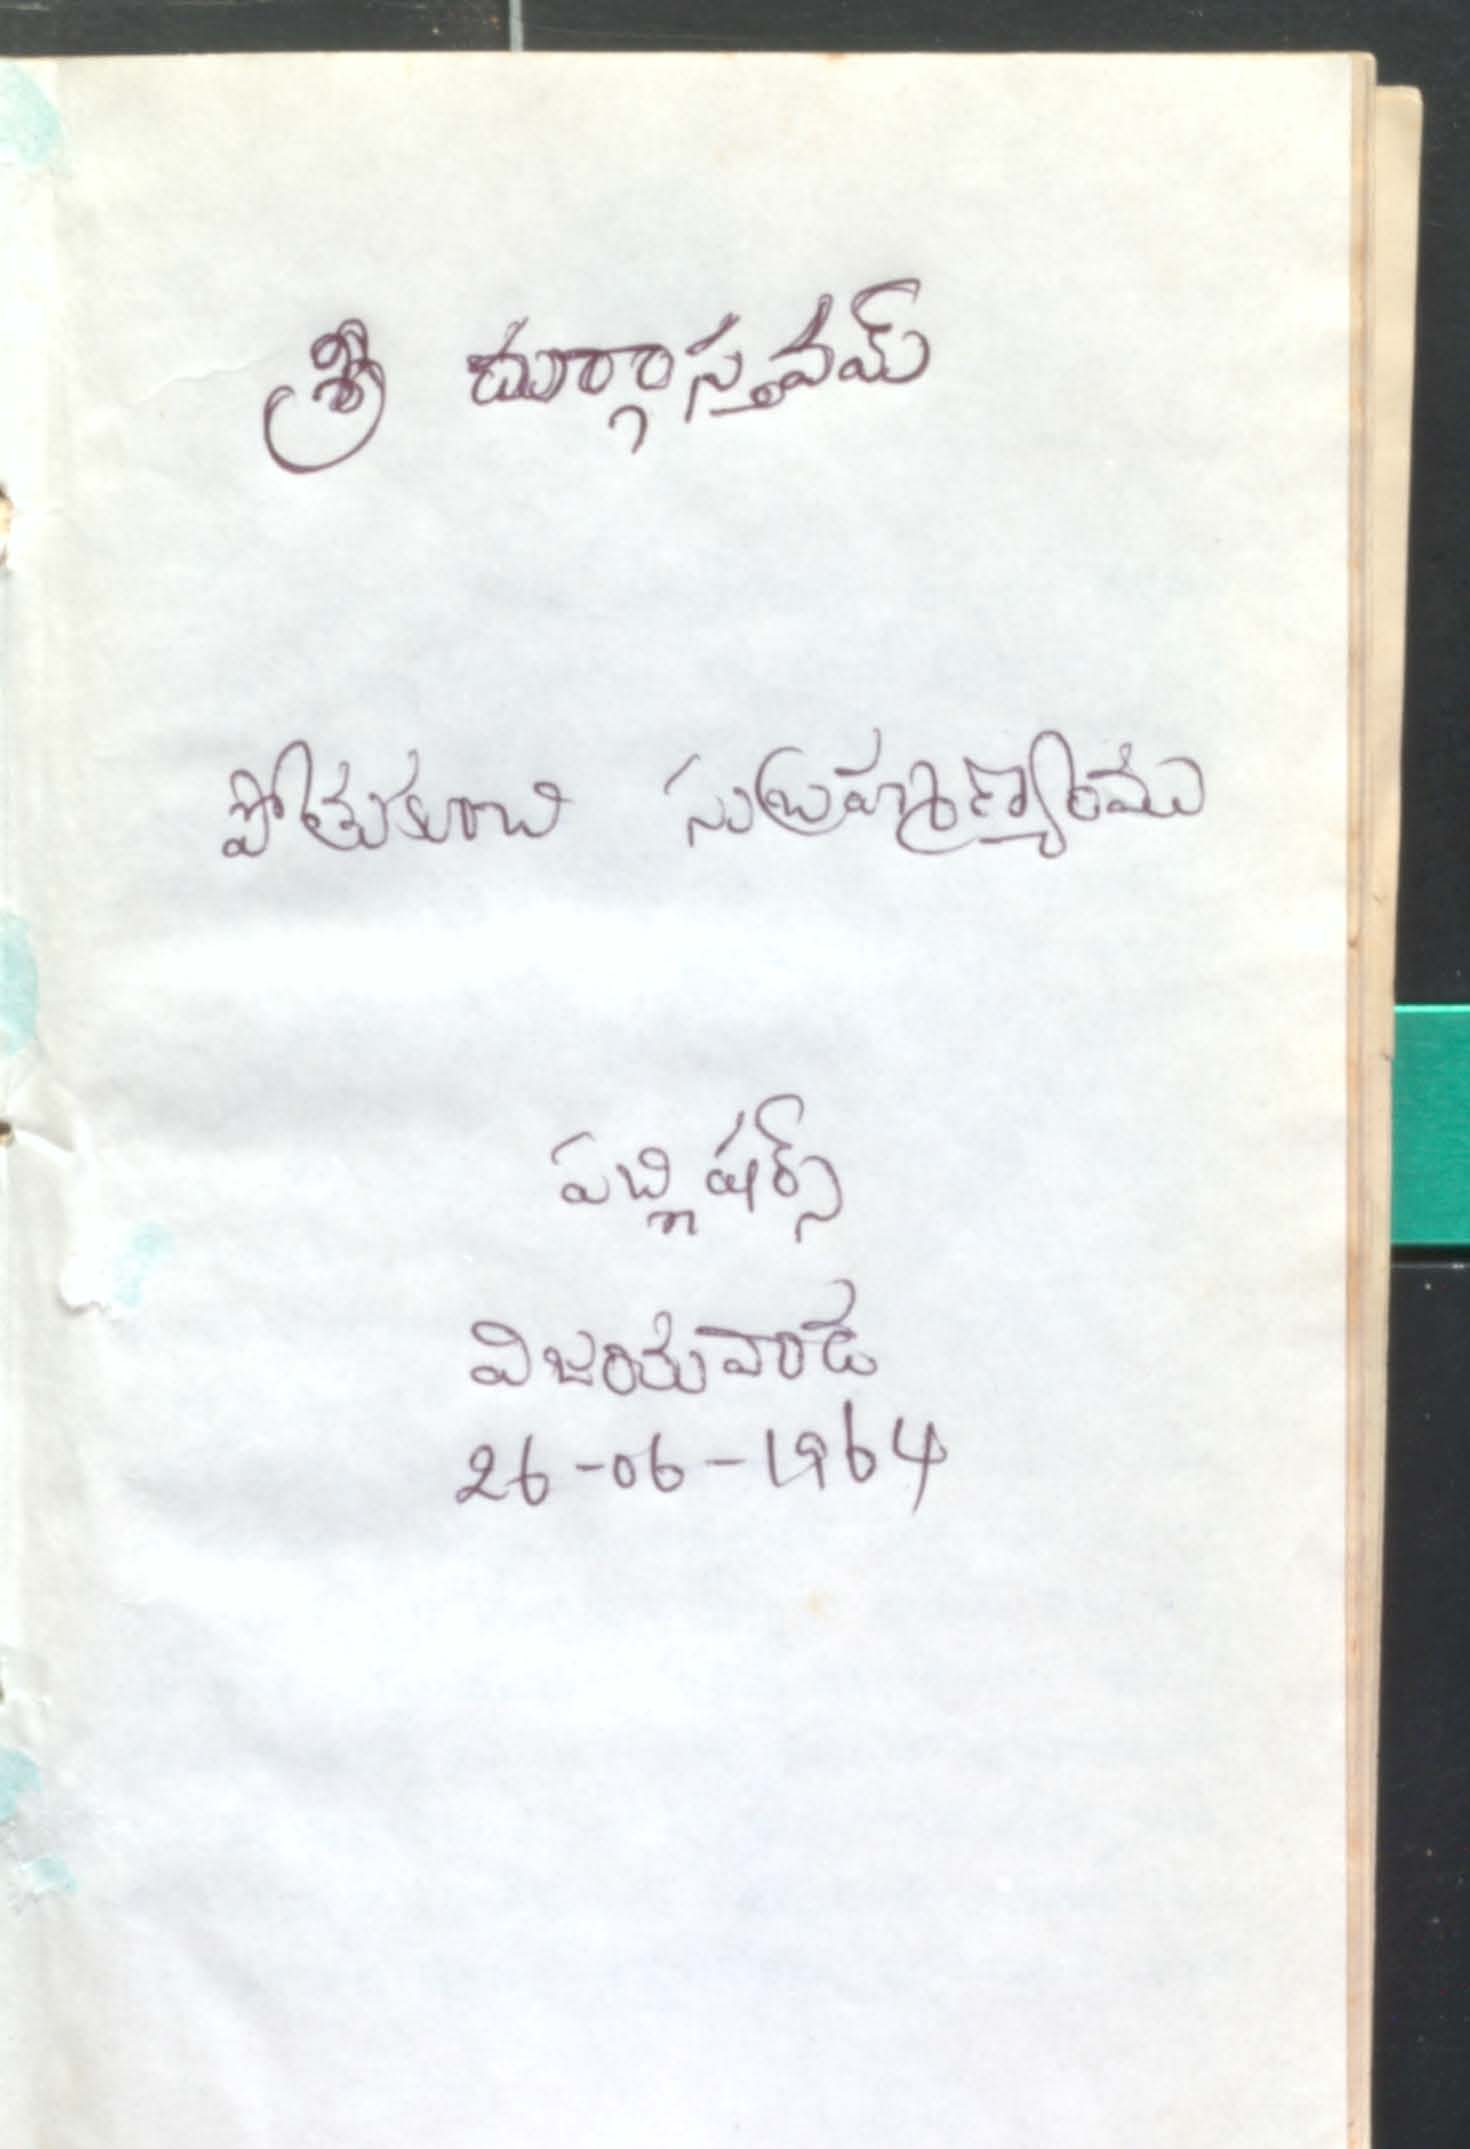 శ్రీ దుర్గాస్తవమ్
పోతుకూచి సుబ్రహ్మణ్యము
పబ్లిషర్స్
విజయవాడ
26-06-1964